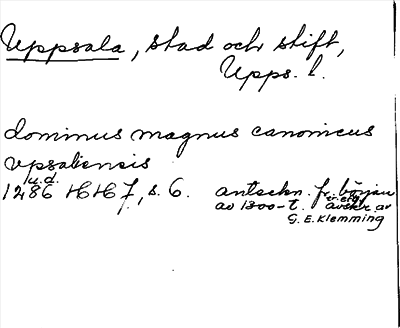 Uppsala, stad och stift,
Upps. l.
dominus magnus canonicus
upsaliensis
u.d.
1286 HH 7, s. 6. anteckn. fr. början
av 1300-t. avskr. av
G. E. Klemming